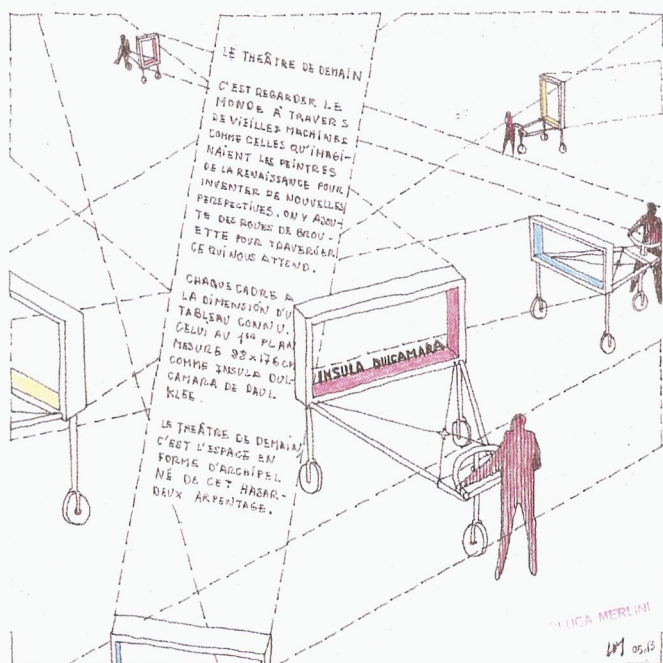 LE THEÂTRE DE DEMAIN
C'EST REGARDER LE
MONDE À TRAVERS
DE VIEILLES MACHINES
COMME CELLES QU'IMAGI-
NAIENT LES PEINTRES
DE LA RENAISSANCE POUR
INVENTER DE NOUVELLES
PERSPECTIVES. ON Y AJOU-
TE DES ROUES DE BROU-
ETTE POUR TRAVERSER
CE QUI NOUS ATTEND.
CHAQUE CADRE A
LA DIMENSION D'U
TABLEAU CONNU.
CELUI AU 1ER PLAN
MESURE 88x176 CM
COMME INSULA DUL-
CAMARA DE PAUL
KLEE.
LE THEÂTRE DE DEMAIN
C'EST L'ESPACE EN
FORME D'ARCHIPEL
NÉ DE CET HASAR-
DEUX ARPENTAGE.
INSULA DULCAMARA
LUCA MERLINI
LM 05.13